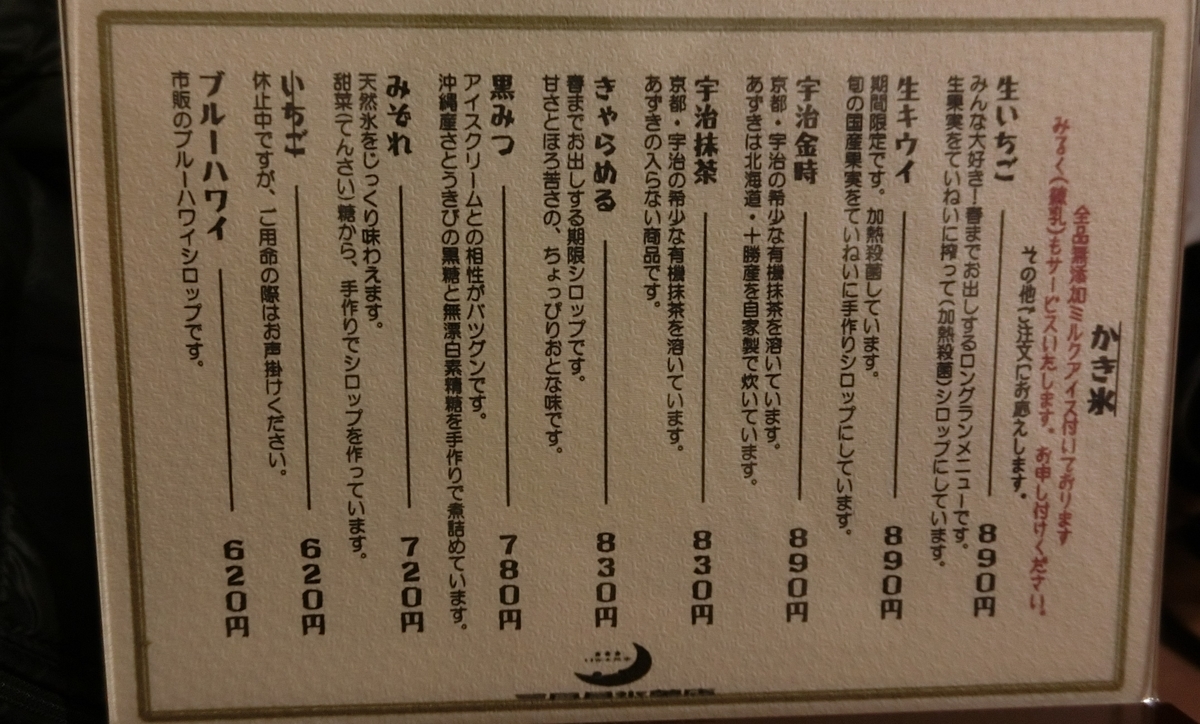 かき氷
全品無添加ミルクアイス付いております
みるく(練乳)もサービスいたします。お申し付けください。
その他ご注文にお応えします。
生いちご 890円
みんな大好き!春までお出しするロングランメニューです。
生果実をていねいに搾って(加熱殺菌)シロップにしています。
生キウイ 890円
期間限定です。加熱殺菌しています。
旬の国産果実をていねいに手作りシロップにしています。
宇治金時 890円
京都・宇治の希少な有機抹茶を溶いています。
あずきは北海道・十勝産を自家製で炊いています。
宇治抹茶 830円
京都・宇治の希少な有機抹茶を溶いています。
あずきの入らない商品です。
きゃらめる 830円
春までお出しする期限シロップです。
甘さとほろ苦さの、ちょっぴりおとな味です。
黒みつ 780円
アイスクリームとの相性がバツグンです。
沖縄産さとうきびの黒糖と無漂白素精糖を手作りで煮詰めています。
みぞれ 720円
天然氷をじっくり味わえます。
甜菜(てんさい)糖から、手作りでシロップを作っています。
いちご 620円
休止中ですが、ご用命の際はお声掛けください。
ブルーハワイ 620円
市販のブルーハワイシロップです。